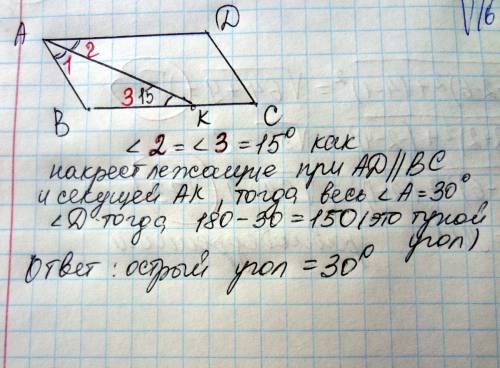 А
D
2
1
3
15
В
К
С
∠2=∠3=15° как
накрест лежащие при AD∥BC
и секущей АК, тогда весь ∠А=30°
∠D тогда 180-30=150 (это тупой
угол)
Ответ: острый угол = 30°